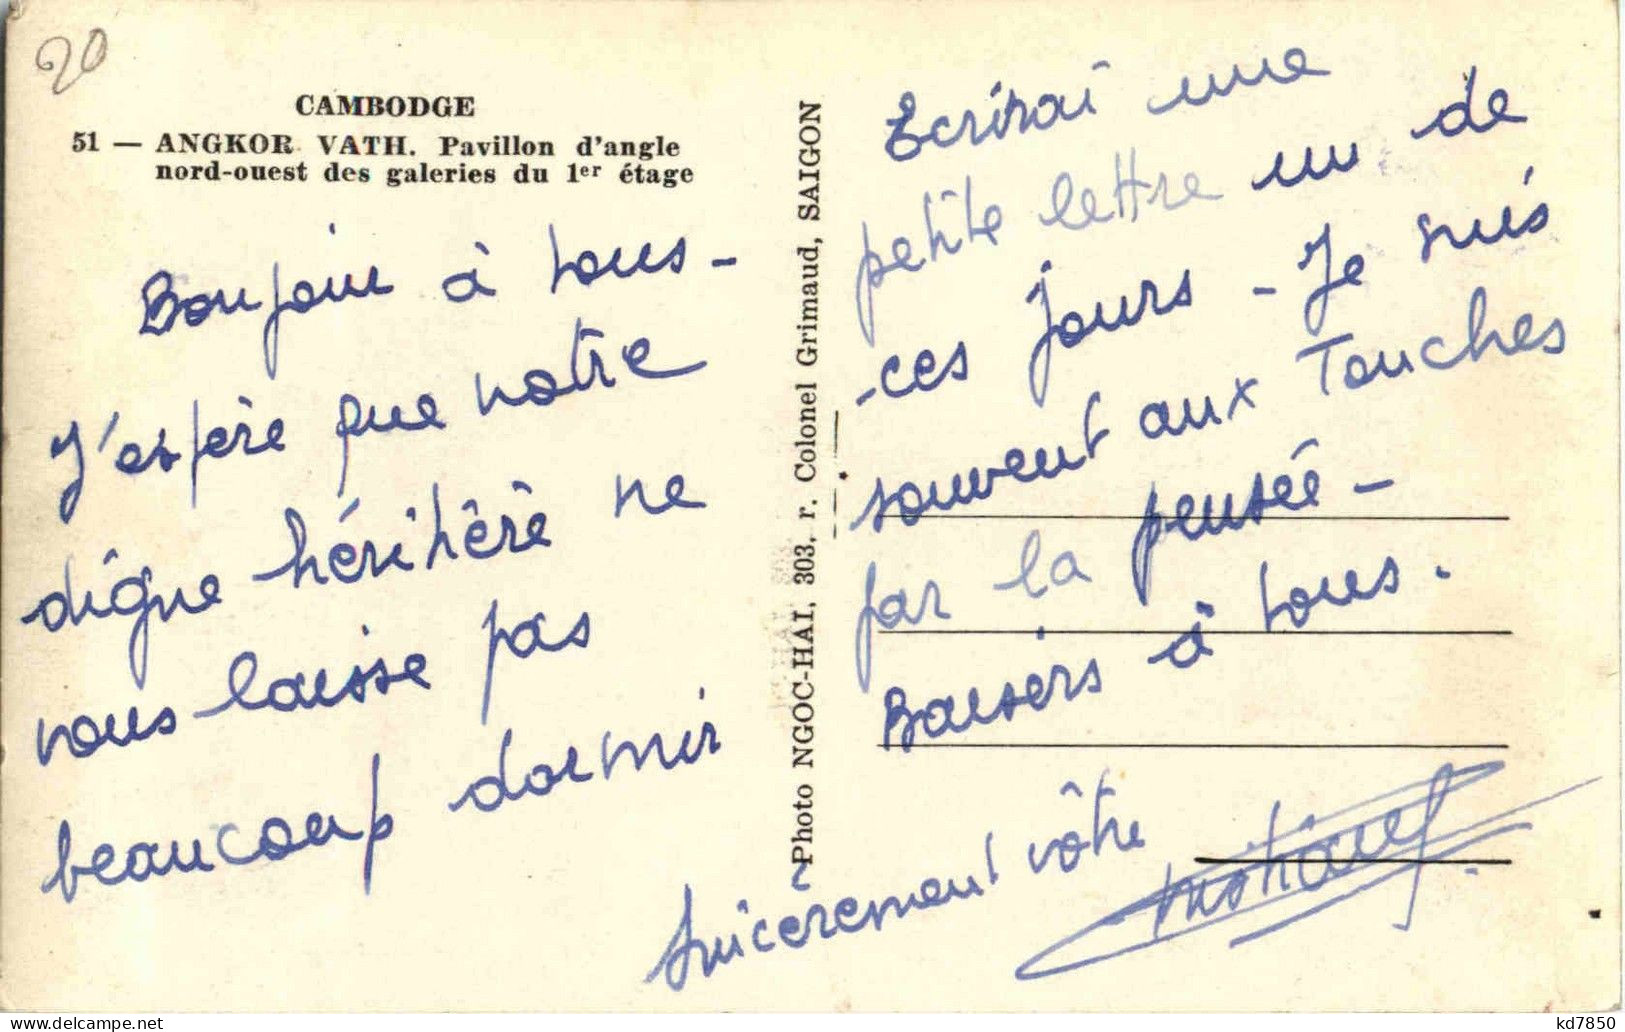 20
CAMBODGE
51 — ANGKOR VATH. Pavillon d'angle
nord-ouest des galeries du 1er étage
Bonjour à tous -
J'espère que notre
digne hérihèrè ne
vous laisse pas
beaucoup dormir
Photo NGOC-HAI, 303, r. Colonel Grimaud, SAIGON
Ecrirai une
petite lettre un de
-ces jours - Je suis
souvent aux Touches
par la pensée -
Baisers à tous.
Sincèrement vôtre
kd7850